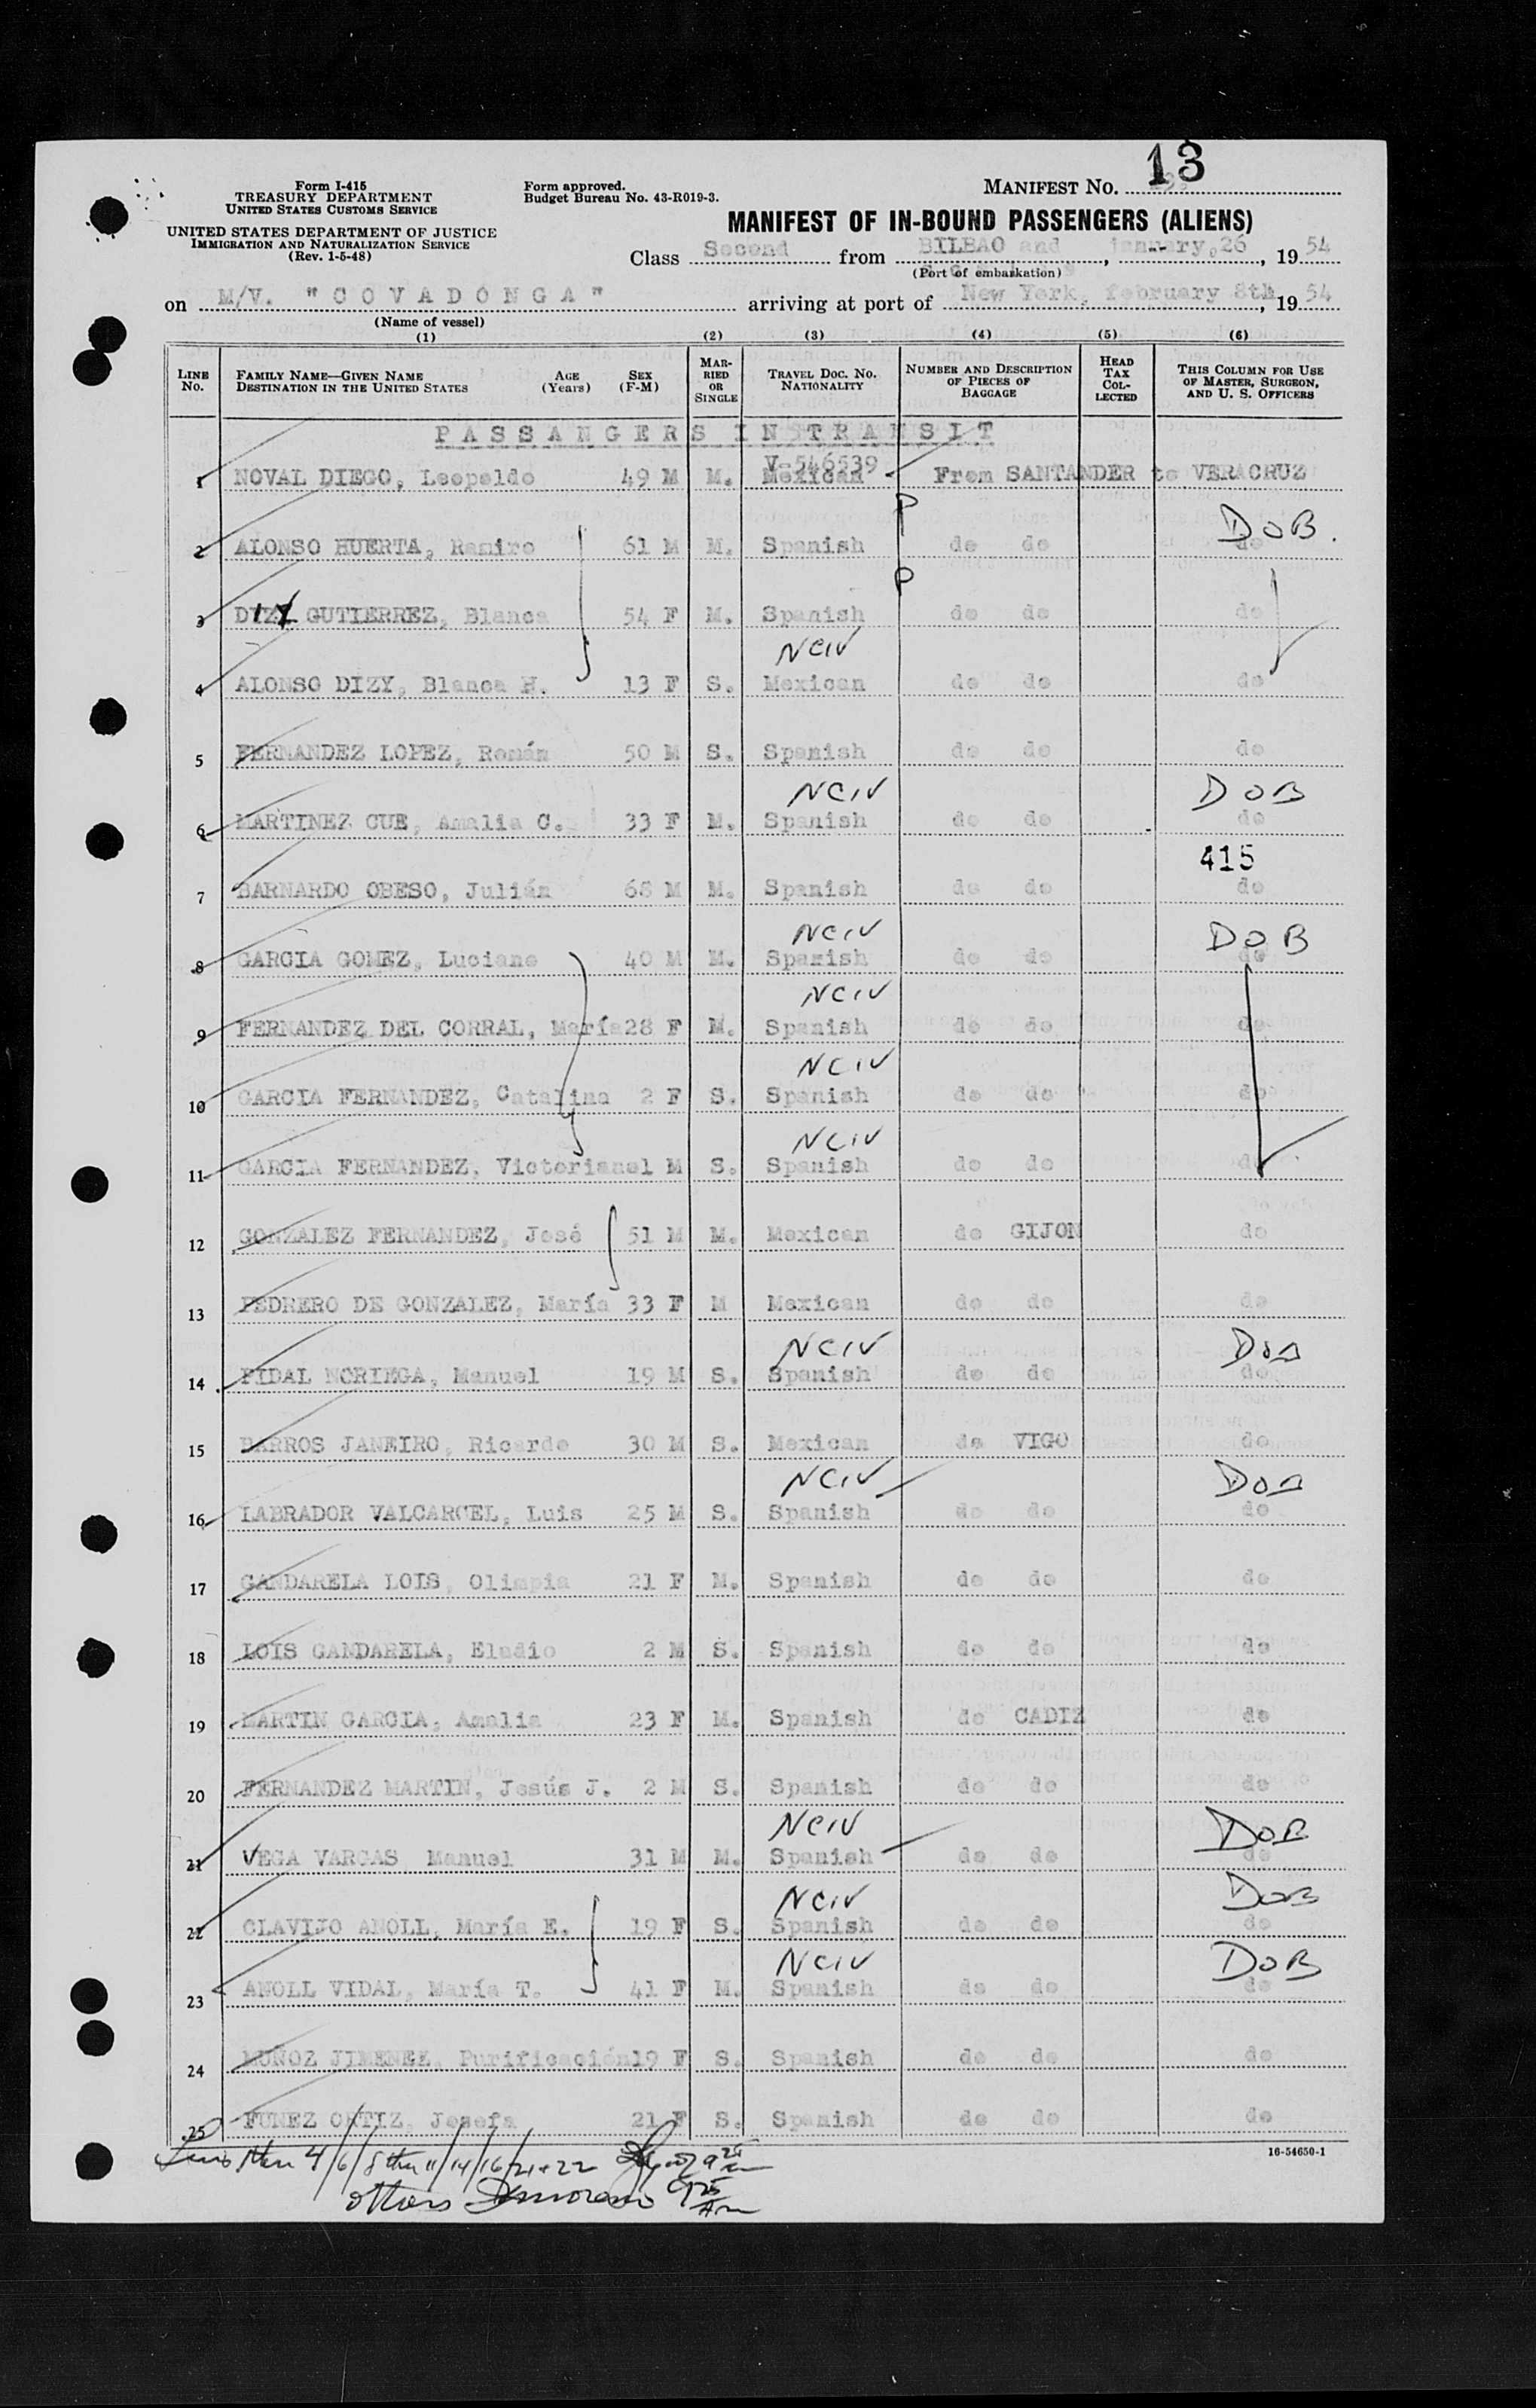 13
Form I-415
TREASURY DEPARTMENT
UNITED STATES CUSTOMS SERVICE
UNITED STATES DEPARTMENT OF JUSTICE
IMMIGRATION AND NATURALIZATION SERVICE
(Rev. 1-5-48)
Form approved.
Budget Bureau No. 43-R019-3.
MANIFEST NO.
MANIFEST OF IN-BOUND PASSENGERS (ALIENS)
Class Second from BILBAO and january,26, 1954
(Port of embarkation)
on M/V. "COVADONGA" arriving at port of New York, february 8th, 1954
(Name of vessel)
(1) (2) (3) (4) (5) (6)
LINE NO. FAMILY NAME—GIVEN NAME DESTINATION IN THE UNITED STATES AGE (Years) SEX (F-M) MARRIED OR SINGLE TRAVEL DOC. NO. NATIONALITY NUMBER AND DESCRIPTION OF PIECES OF BAGGAGE HEAD TAX COLLECTED THIS COLUMN FOR USE OF MASTER, SURGEON, AND U. S. OFFICERS
PASSANGERS IN TRANSIT
V-546539
1 NOVAL DIEGO, Leopoldo 49 M M. Mexican From SANTANDER to VERACRUZ
P DOB.
2 ALONSO HUERTA, Ramiro 61 M M. Spanish do do do
P
3 DIZY GUTIERREZ, Blanca 54 F M. Spanish do do do
NCIV
4 ALONSO DIZY, Blanca H. 13 F S. Mexican do do do
5 FERNANDEZ LOPEZ, Román 50 M S. Spanish do do do
NCIV DOB
6 MARTINEZ CUE, Amalia C. 33 F M. Spanish do do do
415
7 BARNARDO OBESO, Julián 68 M M. Spanish do do do
NCIV DOB
8 GARCIA GOMEZ, Luciano 40 M M. Spanish do do do
NCIV
9 FERNANDEZ DEL CORRAL, María 28 F M. Spanish do do do
NCIV
10 GARCIA FERNANDEZ, Catalina 2 F S. Spanish do do do
NCIV
11 GARCIA FERNANDEZ, Victoriano 1 M S. Spanish do do do
12 GONZALEZ FERNANDEZ, José 51 M M. Mexican do GIJON do
13 PEDRERO DE GONZALEZ, María 33 F M Mexican do do do
NCIV DOB
14 PIDAL NORIEGA, Manuel 19 M S. Spanish do do do
15 BARROS JANEIRO, Ricardo 30 M S. Mexican do VIGO do
NCIV DOB
16 LABRADOR VALCARCEL, Luis 25 M S. Spanish do do do
17 GANDARELA LOIS, Olimpia 21 F M. Spanish do do do
18 LOIS GANDARELA, Eladio 2 M S. Spanish do do do
19 MARTIN GARCIA, Amalia 23 F M. Spanish do CADIZ do
20 FERNANDEZ MARTIN, Jesús J. 2 M S. Spanish do do do
NCIV DOB
21 VEGA VARGAS Manuel 31 M M. Spanish do do do
NCIV DOB
22 CLAVIJO ANOLL, María E. 19 F S. Spanish do do do
NCIV DOB
23 ANOLL VIDAL, María T. 41 F M. Spanish do do do
24 MUÑOZ JIMENEZ, Purificación 19 F S. Spanish do do do
25 FUNEZ ORTIZ, Josefa 21 F S. Spanish do do do
16-54650-1
4/6/8 thru 11/14/16/21+22
others